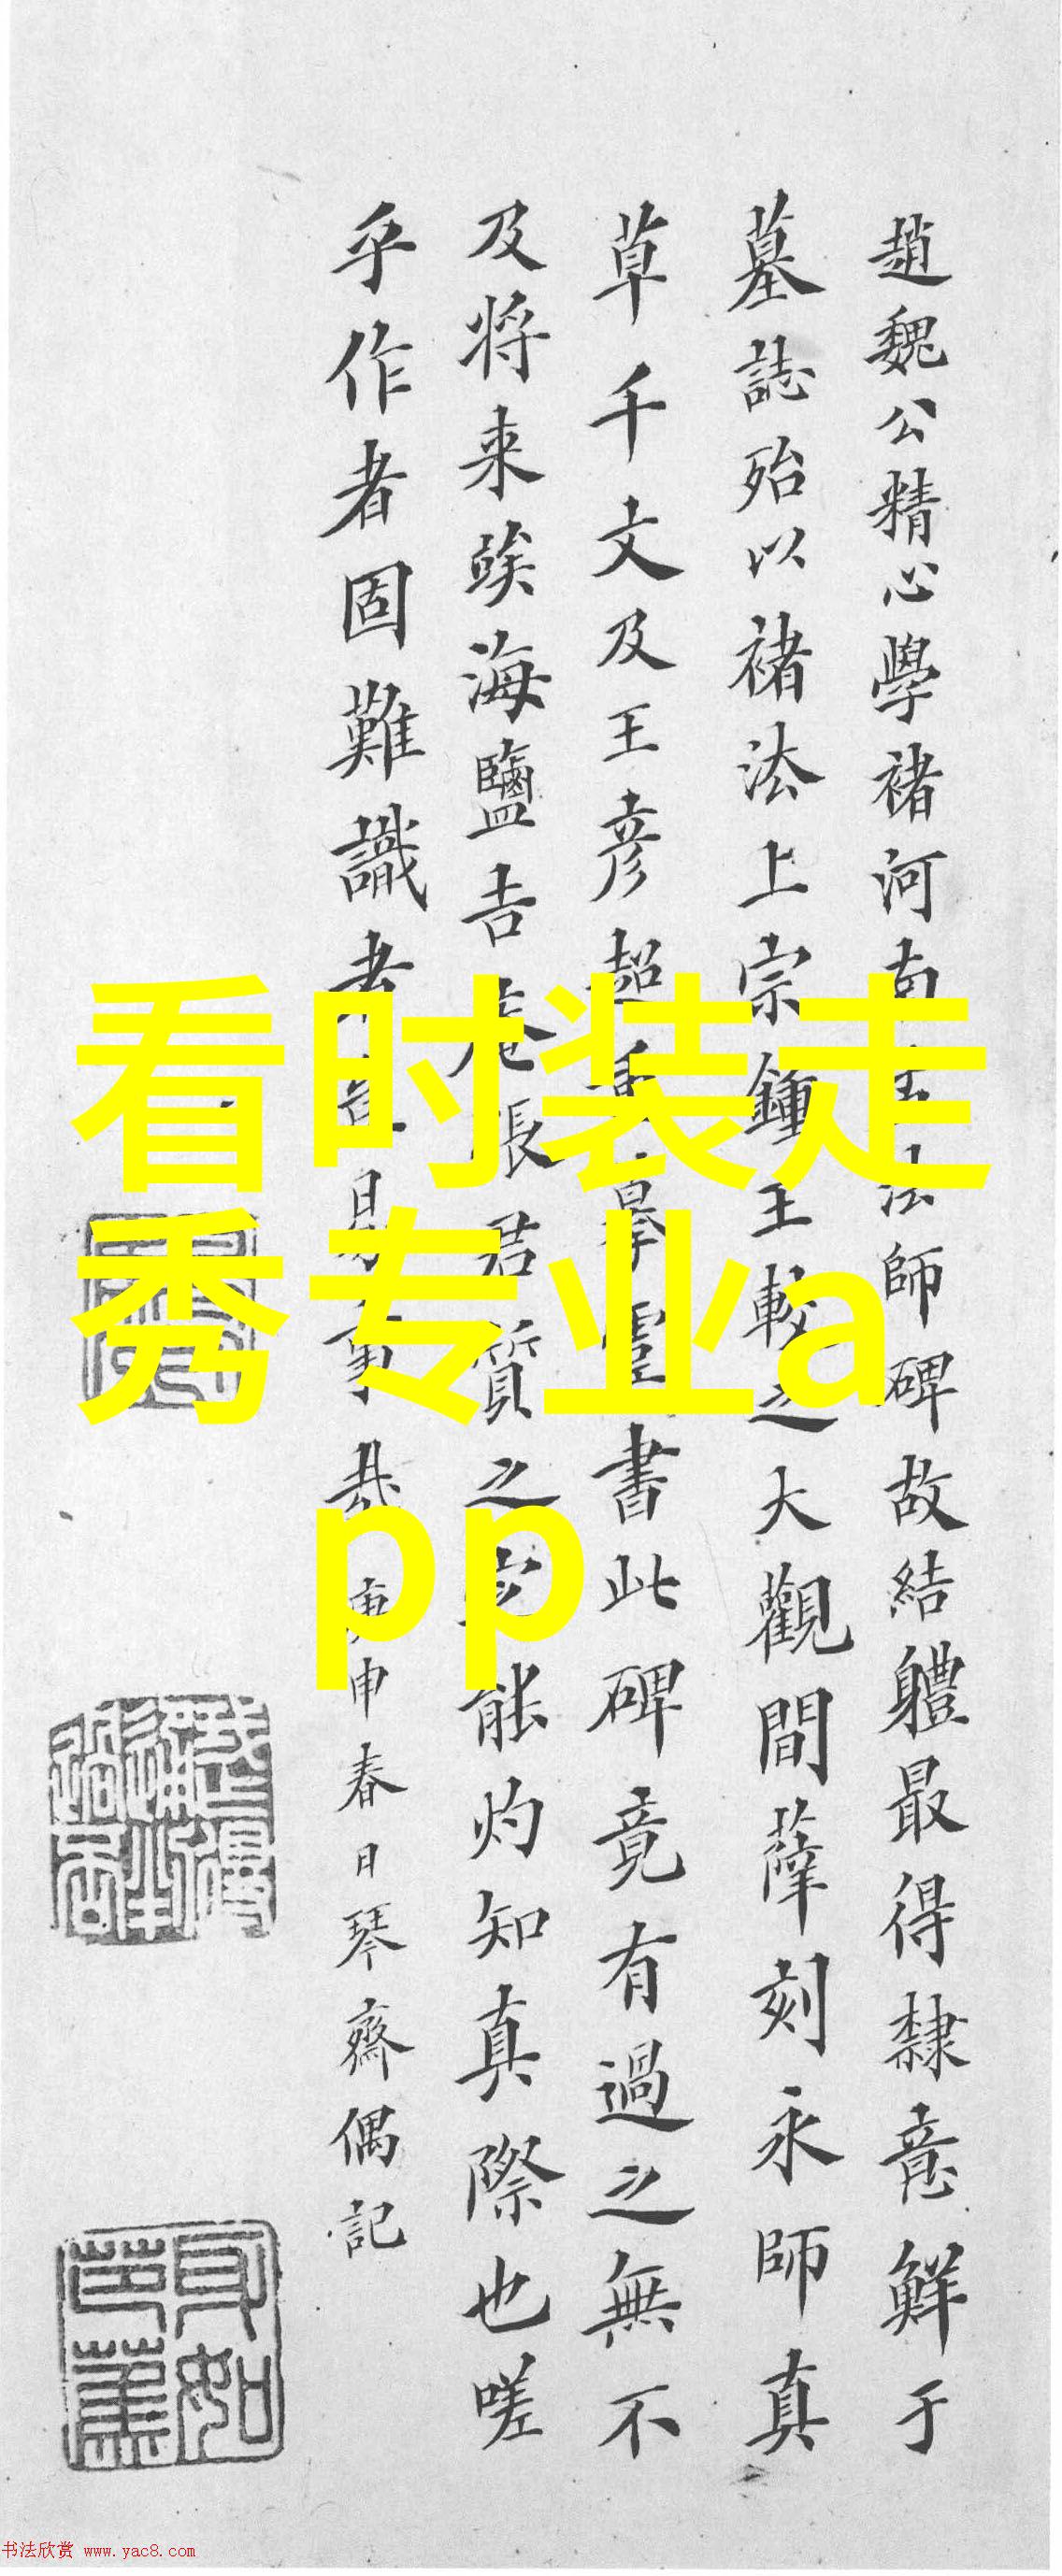 趙魏公精心學褚河南孟法師碑故結軆最得隸意鮮于
墓誌殆以褚法上宗鍾王較之大觀間薛刻永師真
草千文及王彥超重摹虞書此碑竟有過之無不
及将来竢海鹽吉庵張君質之定能灼知真際也嗟
乎作者固難識者豈易事哉 庚申春日琴齋偶記
看时装走
秀专业a
pp
书法欣赏 www.yac8.com